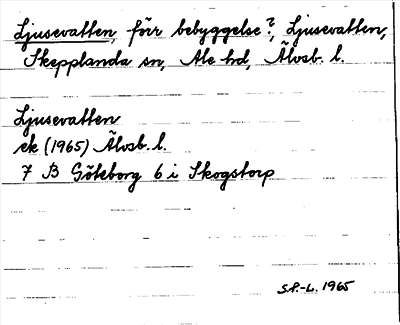 Ljusevatten, förr bebyggelse?, Ljusevatten,
Skepplanda sn, Ale hd, Älvsb. l.
Ljusevatten
ek (1965) Älvsb. l.
7 B Göteborg 6 i Skogstorp
S.P.-L. 1965